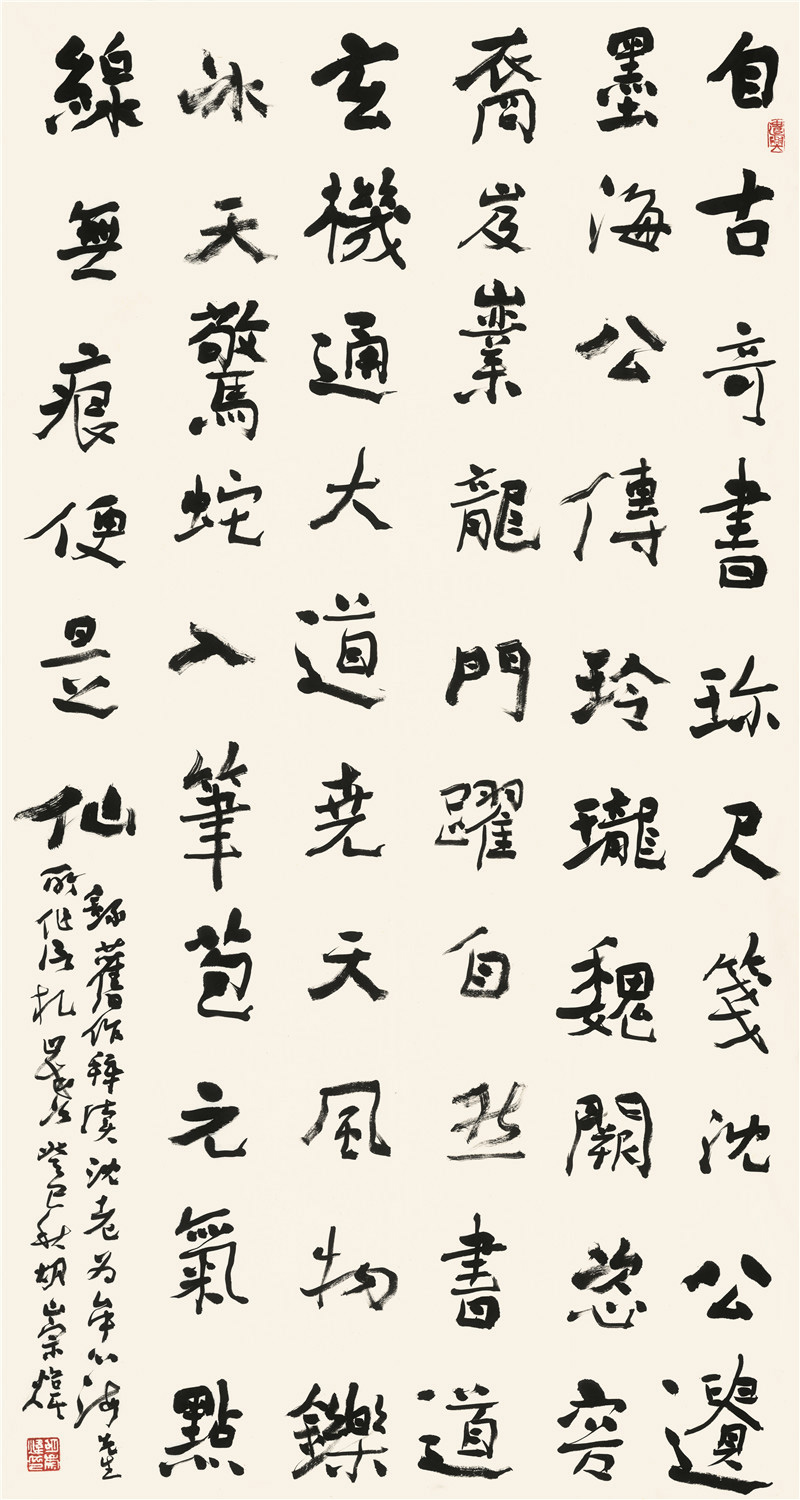 自古奇書珎尺箋沈公遺
墨海公傳玲瓏魏闕恣容
裔岌嶪龍門躍自然書道
玄機通大道堯天風物鑠
冰天驚蛇入筆苞元氣點
線無痕便是仙
錄舊作拜讀沈老為牟心海先生
所作信札 癸巳秋胡崇煒